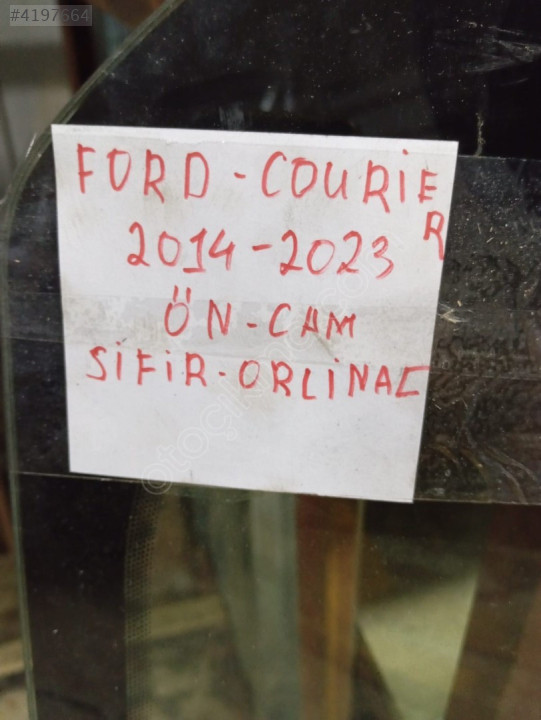 #4197664
FORD - COURİER
2014 - 2023
ÖN - CAM
SİFİR - ORLİNAL